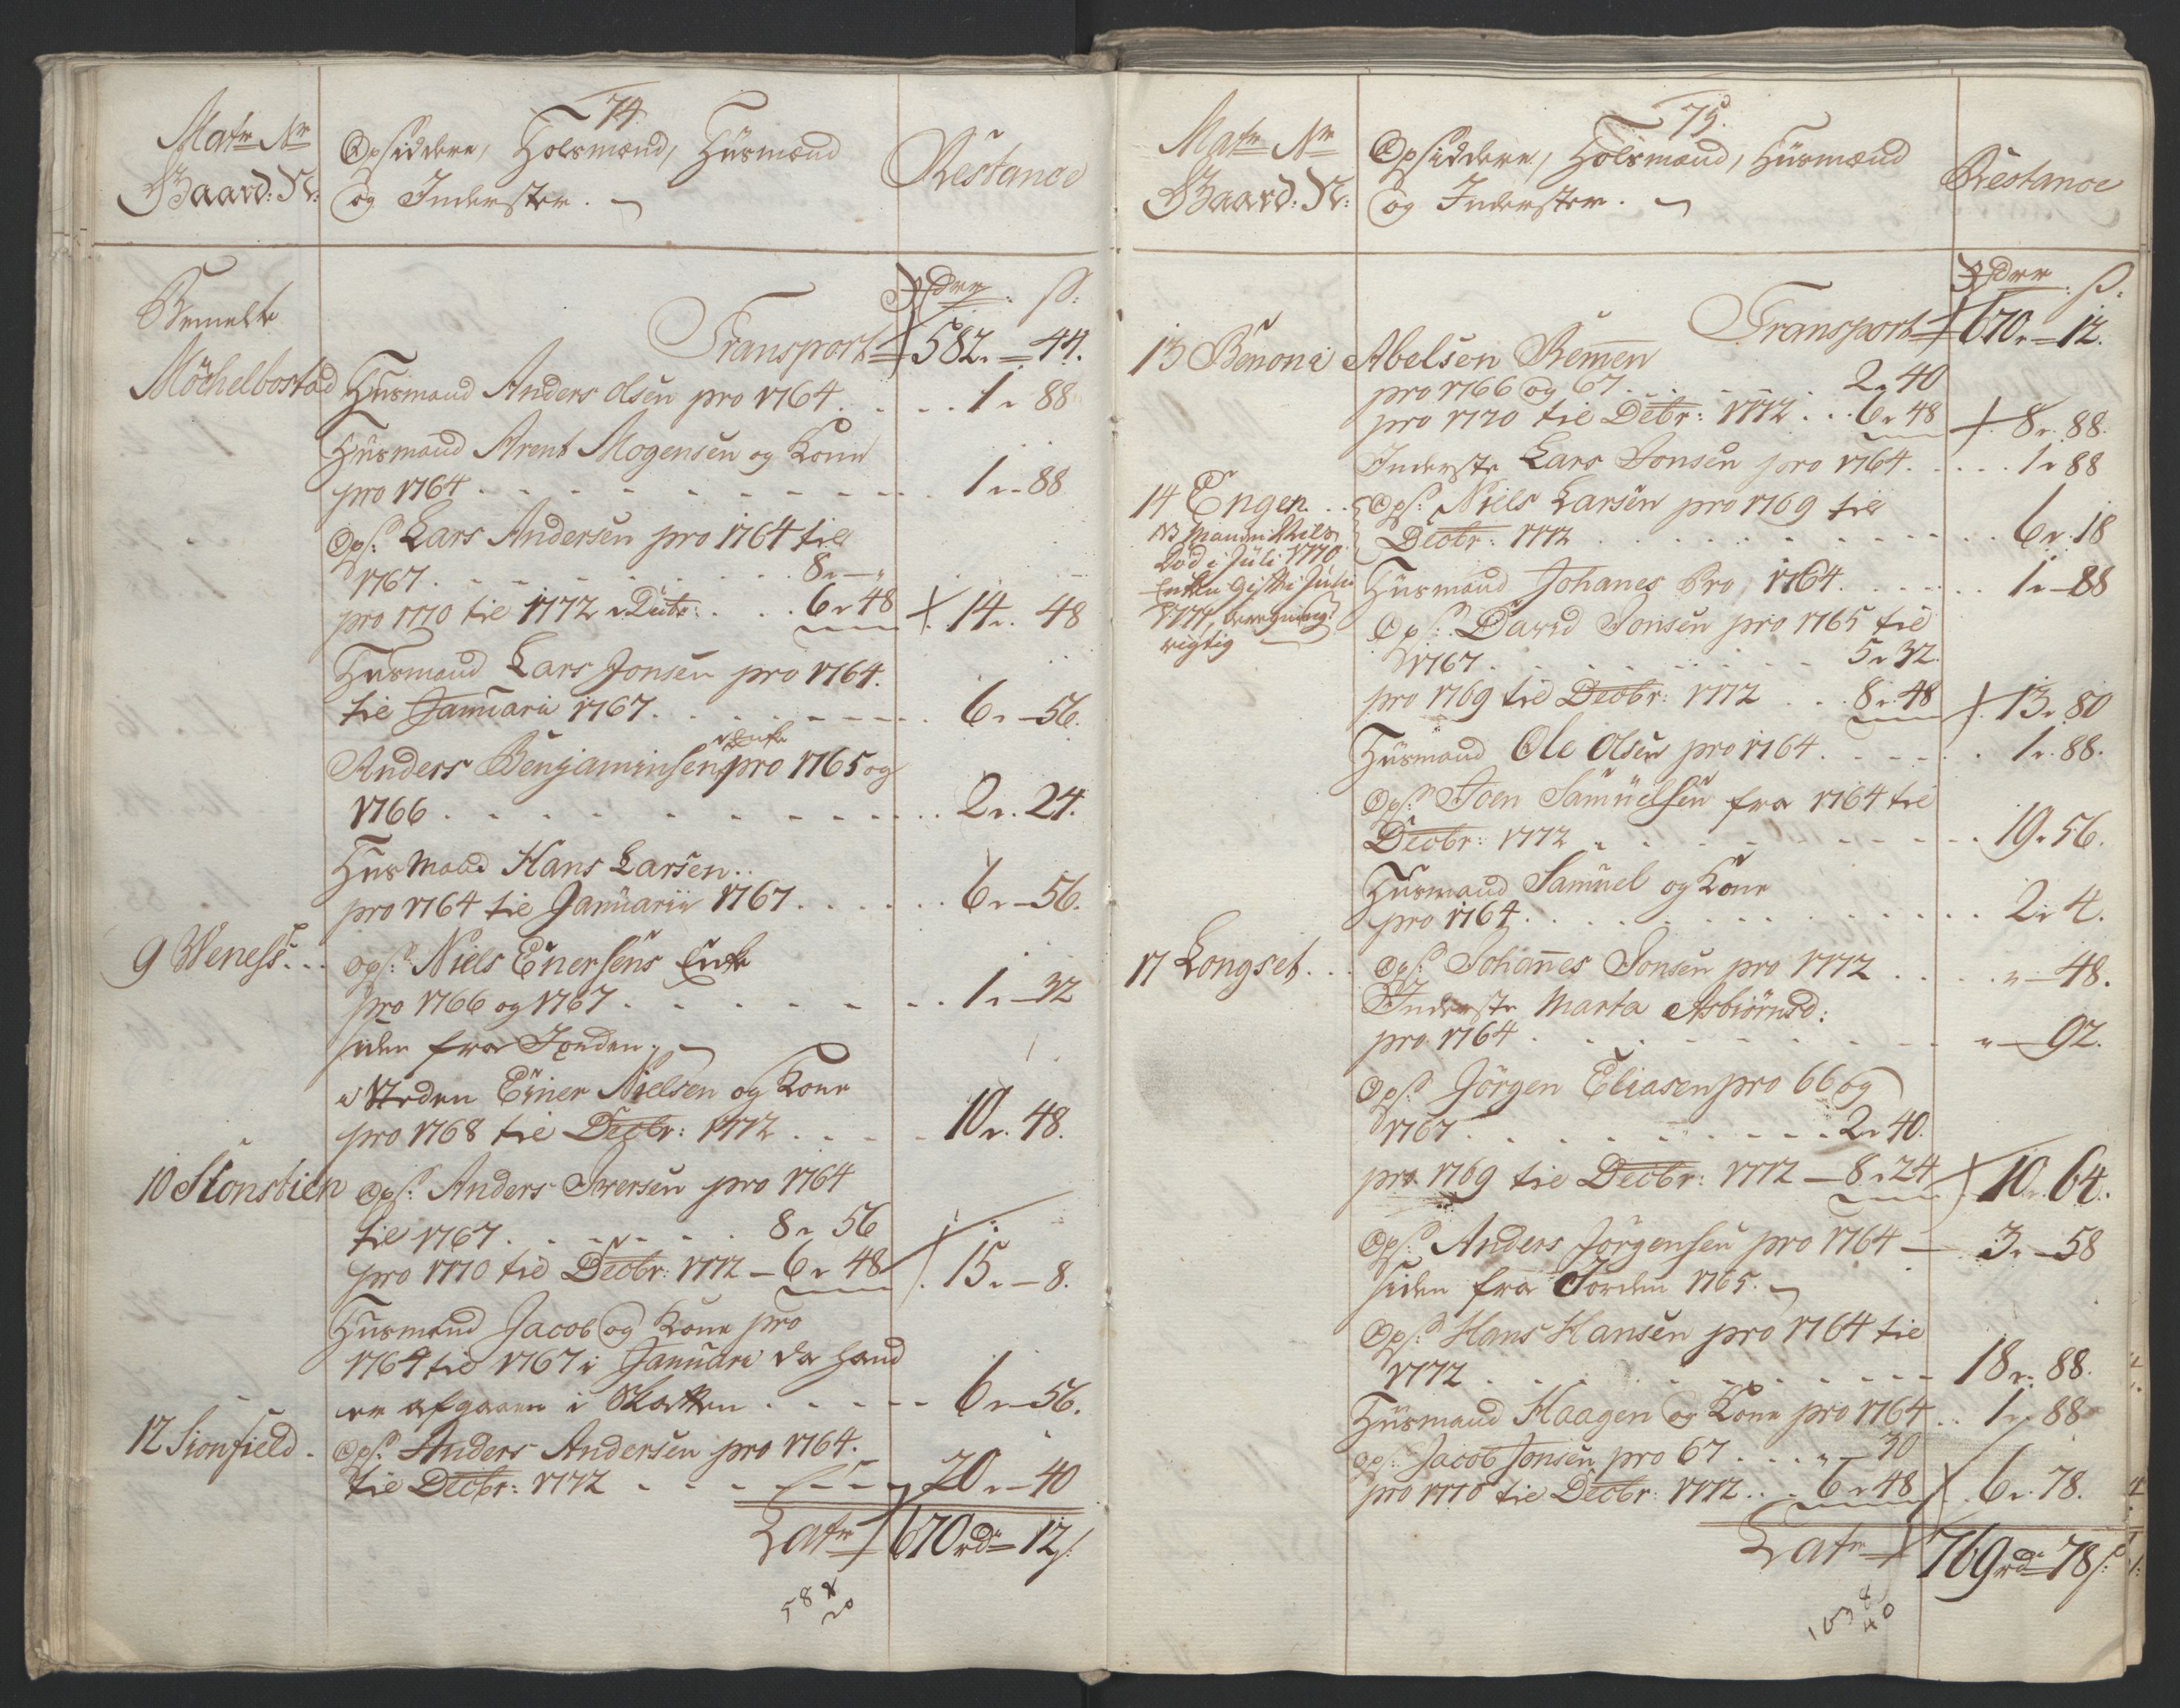 74.
Matr Nr
Gaard: N:
Opsiddere, Holsmænd, Huusmænd
og Inderster.
Restance
Rdr ß:
Bemelte
Transport 582. - 44.
Möchelbostad Huusmand Anders Olsen pro 1764 . . . . 1 " 88
Huusmand Arent Mogensen og Kone
pro 1764 . . . 1 " 88
Ops: Lars Andersen pro 1764 til
1767 . . . 8 " - "
pro 1770 til 1772 Decbr: . . . 6 " 48 14 " 48
Huusmand Lars Jonsen pro 1764.
til Januarii 1767 . . . 6 " 56.
Enke
Anders Benjaminsens pro 1765 og
1766 . . . 2 " 24.
Huusmand Hans Larsen..
pro 1764 til Januarii 1767 . . . 6 " 56.
9 Weness... Ops: Niels Enersens Enke
pro 1766 og 1767 . . . 1 " 32
siden fra Jorden.
i Steden Einer Nielsen og Kone
pro 1768 til Decbr: 1772 . . . 10 " 48.
10 Slonstien Ops: Anders Iversen pro 1764
til 1767 . . . 8 " 56
pro 1770 til Decbr: 1772 - 6 " 48 15 " - 8.
Huusmand Jacob og Kone pro
1764 til 1767 i Januari da hand
er afgaaen i Skatten . . . 6 " 56.
12 Sionfield . Ops: Anders Andersen pro 1764.
til Decbr: 1772 . . . 20 " 40
Latr 670 rd 12 ß.
588
20
75.
Matr Nr
Gaard: N:
Opsiddere, Holsmænd, Huusmænd
og Inderster.
Restance
Rdr ß:
Transport 670 " 12.
13 Benoni Abelsen Remen
pro 1766 og 67 . . . 2 " 40
pro 1770 til Debr: 1772 . . 6 " 48 8 " 88.
Inderste Lars Jonsen pro 1764 . . . 1 " 88
14 Engen . . Ops: Niels Larsen pro 1769 til
Decbr: 1772 . . . 6 " 18
NB Manden Niels
Död i Juli 1770
Enken Gift i Juli
1771,
rigtig
Huusmand Johanes pro 1764 . . . 1 " 88
Ops: David Jonsen pro 1765 til
1767 . . . 5 " 32.
pro 1769 til Decbr: 1772 . . . 8 " 48 13 " 80
Huusmand Ole Olsen pro 1764 . . . 1 " 88.
Ops: Joen Samuelsen fra 1764 til
Decbr: 1772 . . . 19 " 56.
Huusmand Samuel og Kone
pro 1764 . . . 2 " 4.
17 Longset . . . Ops: Johannes Jonsen pro 1772 . . . " 48.
Inderste Marta Asbiörnsd:
pro 1764 . . . " 92.
Ops: Jörgen Eliasen pro 66 og
1767 . . . 2 " 40.
pro 1769 til Decbr: 1772 - 8 " 24 10 " 64.
Ops: Anders Jörgensen pro 1764 - 3 " 58
siden fra Jorden 1765.
Ops: Hans Hansen pro 1764 til
1772 . . . 18 " 88.
Huusmand Haagen og Kone pro 1764 . . 1 " 88
Ops: Jacob Jonsen pro 67 . . . " 30
pro 1770 til Decbr: 1772 . . . 6 " 48 6 " 78.
Latr 769 rd 78 ß: